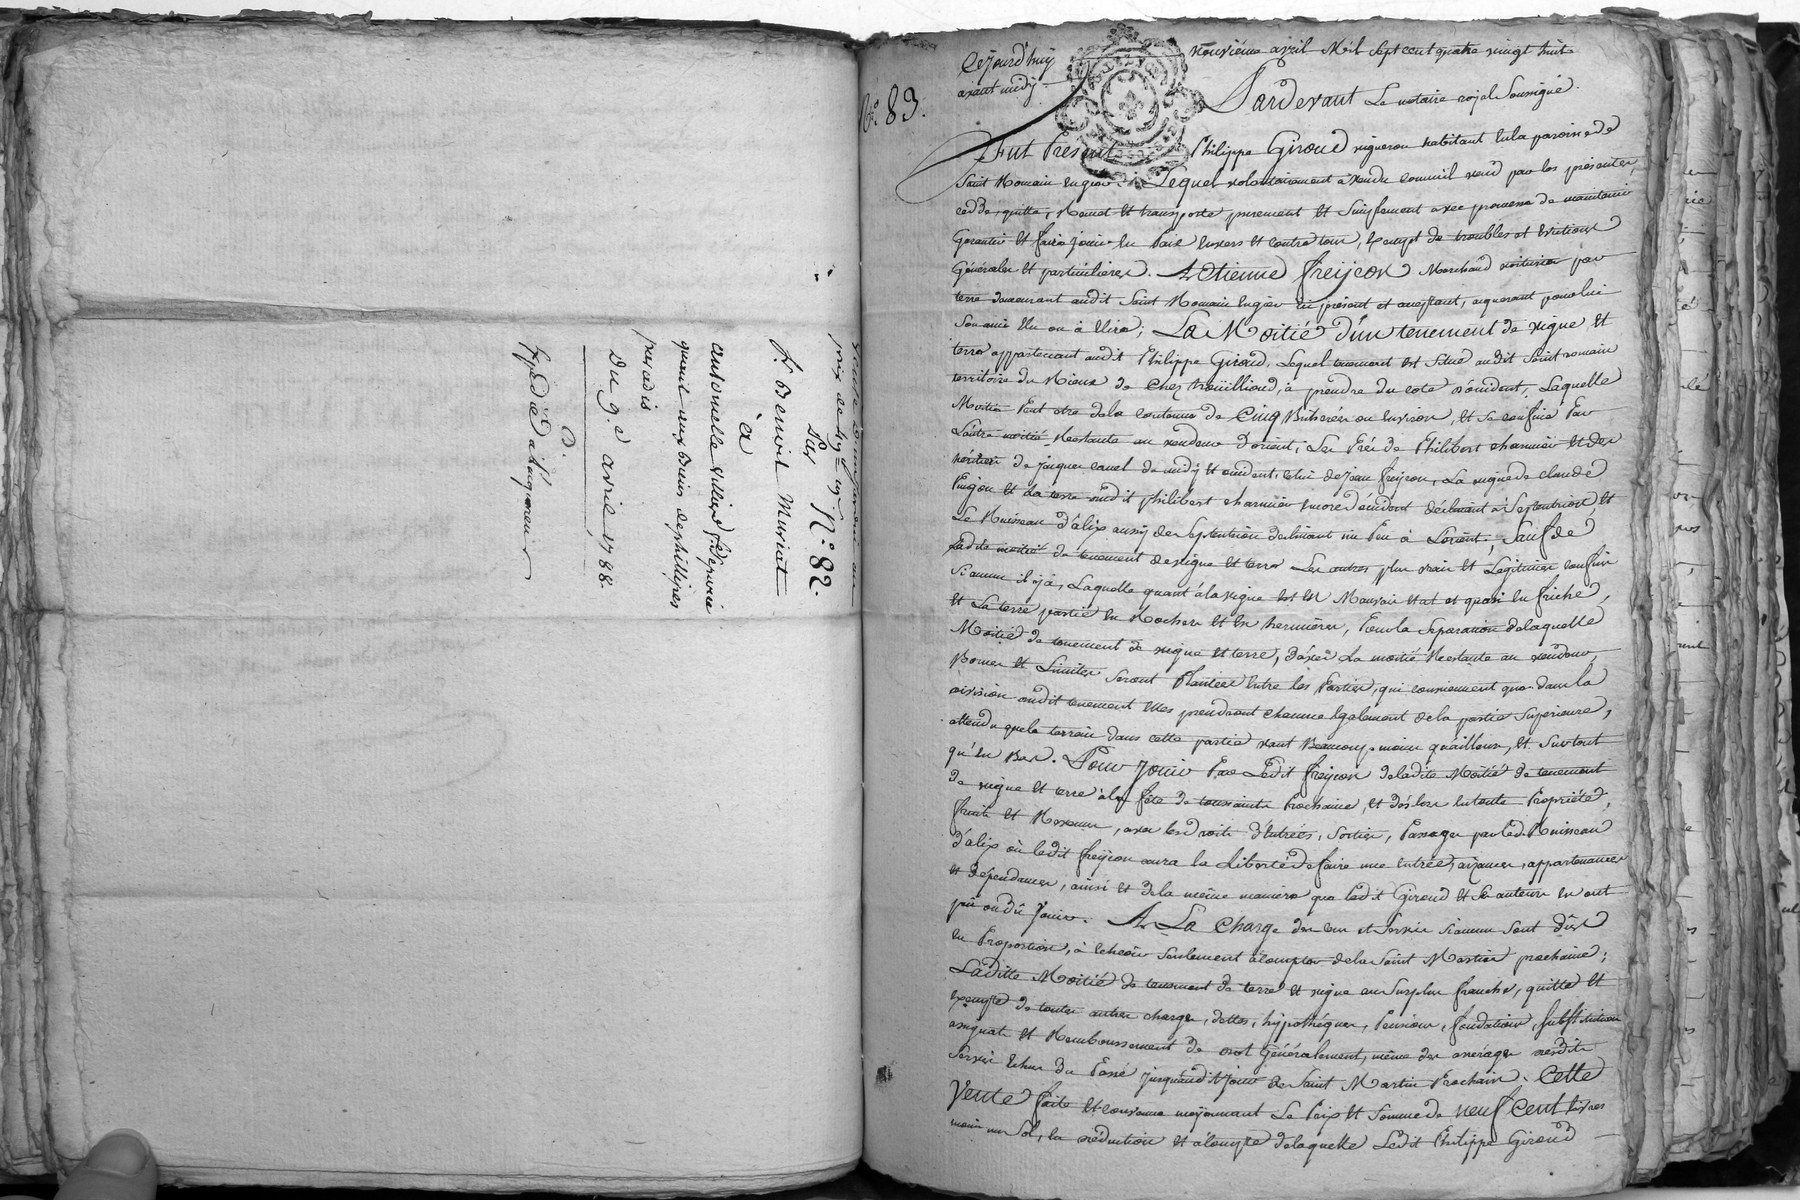 prix de
Par N.° 82.
S.r Benoit Muriat
à
antoinette villiers f.e d'epinnée
quant aux biens de phillipes
paradis
Du 9.e avril 1788.
D.
Expédié à l'acquereur
N.° 83.
Cejourd'huy neuvième avril Mil Sept cent quatre vingt huit
avant midy Pardevant Le notaire royal Soussigné.
Fut Présent Philippe Giroud vigneron habitant en la paroisse de
Saint Romain en gier. Lequel volontairement a vendu comme il vend par les présentes,
cedde, quitte, Remet et transporte purement et Simplement avec promesse de maintenir
Garantir et faire jouir en Paix envers et contre tous, Exempt de troubles et Evictions
Générales et particulieres. A Etienne freyjcon Marchand voiturier par
terre demeurant audit Saint Romain en gier ici présent et acceptant, acquerant pour lui
Son ami Elu ou à Elire; La Moitié d'un tenement de vigne et
terre appartenant audit Philippe Giroud, Lequel tenement est Situé audit Saint romain
territoire du Rieux de Chez trouillioud, à prendre du coté d'occident, Laquelle
Moitié Peut etre de la contenue de Cinq Bicherées ou environ, et Se confine Par
L'autre moitié Restante au vendeur d'orient; Les Prés de Philibert charmion et des
héritiers de Jacques canel de midy et occident, celui de Jean freyjcon, La vigne de claude
Pinjon et La terre audit philibert charmion encore d'occident déclinant à Septentrion, et
Le Ruisseau d'alix aussy de Septentrion déclinant un Peu à Lorient, Sauf de
Ladite moitié de tenement de vigne et terre Les autres plus vrais et Légitimes confins
Si aucun il y a, Laquelle quant à la vigne est en Mauvais état et quasi en friche,
et La terre partie en Rochers et en hermières, Pour la Séparation de laquelle
Moitié de tenement de vigne et terre, d'avec La moitié Restante au vendeur,
Bornes et Limites Seront Plantées Entre les Parties, qui conviennent que dans la
division audit tenement Elles prendront chacune Egalement de la partie Supérieure,
attendu que le terrein dans cette partie vaut Beaucoup moins qu'ailleurs, et Surtout
qu'en Bas. Pour Jouir Par Ledit freyjcon de ladite Moitié de tenement
de vigne et terre à la fête de toussaints Prochaine, et dès lors en toute Propriété,
fruits et Revenus, avec les droits d'Entrées, Sorties, Passages par led. Ruisseau
d'alix où ledit freyjcon aura la Liberté de faire une Entrée, aizances, appartenances
et dépendances, ainsi et de la même maniere que ledit Giroud et Ses auteurs en ont
pû ou dû Jouir. A La Charge des cens et Servis Si aucun Sont dûs
en Proportion, à échéoir Seulement à compter de la Saint Martin prochaine;
Laditte Moitié de tenement de terre et vigne au Surplus franche, quitte et
exempte de toutes autres charges, dettes, hypothéques, Pensions, fondations, Substitution
assignat et Remboursement de dot Généralement, même des arrérages desdits
Servis Echus du Passé jusqu'audit Jour de Saint Martin Prochain. Cette
Vente faite et convenue moyennant Le Prix et Somme de neuf Cent livres
moins un Sol, la rédution et à compte de laquelle Ledit Philippe Giroud